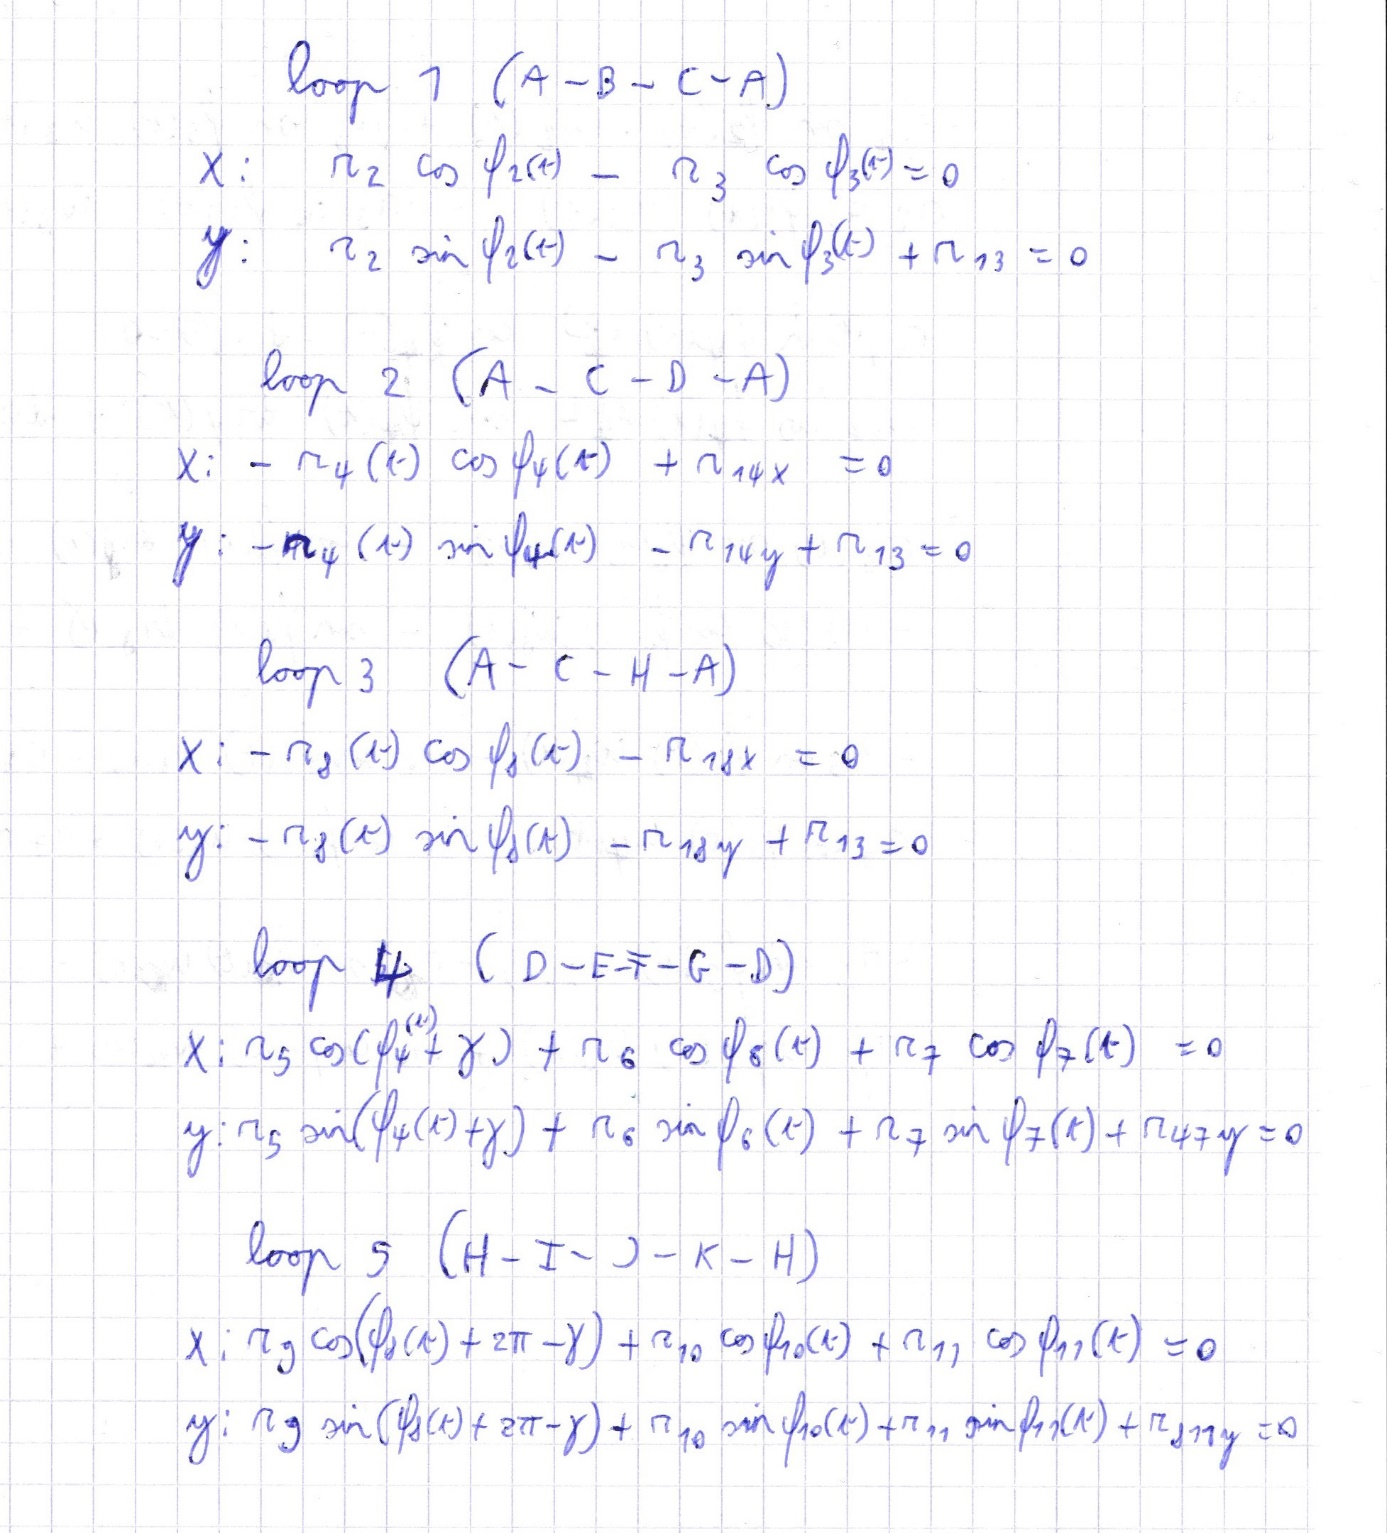 loop 1 (A - B - C - A)
x: r₂ cos φ₂(t) - r₃ cos φ₃(t) = 0
y: r₂ sin φ₂(t) - r₃ sin φ₃(t) + r₁₃ = 0
loop 2 (A - C - D - A)
x: - r₄(t) cos φ₄(t) + r₁₄ₓ = 0
y: - r₄(t) sin φ₄(t) - r₁₄y + r₁₃ = 0
loop 3 (A - C - H - A)
x: - r₈(t) cos φ₈(t) - r₁₈ₓ = 0
y: - r₈(t) sin φ₈(t) - r₁₈y + r₁₃ = 0
loop 4 (D - E - F - G - D)
x: r₅ cos(φ₄(t) + γ) + r₆ cos φ₆(t) + r₇ cos φ₇(t) = 0
y: r₅ sin(φ₄(t) + γ) + r₆ sin φ₆(t) + r₇ sin φ₇(t) + r₄₇y = 0
loop 5 (H - I - J - K - H)
x: r₉ cos(φ₈(t) + 2π - γ) + r₁₀ cos φ₁₀(t) + r₁₁ cos φ₁₁(t) = 0
y: r₉ sin(φ₈(t) + 2π - γ) + r₁₀ sin φ₁₀(t) + r₁₁ sin φ₁₁(t) + r₈₁₁y = 0